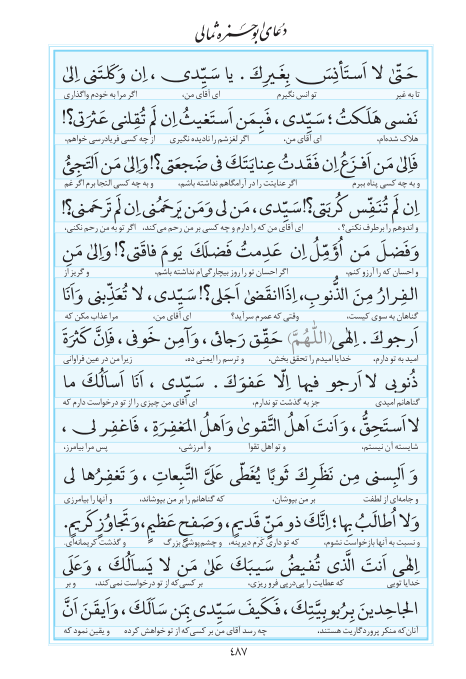 دعای ابوحمزه ثمالی
حَتّىٰ لا اَستَأنِسَ بِغَيرِكَ . يا سَيِّدى ، اِن وَكَلتَنى اِلىٰ
تا به غیر تو انس نگیرم ای آقای من، اگر مرا به خودم واگذاری
نَفسى هَلَكتُ ؛ سَيِّدى ، فَبِمَن اَستَغيثُ اِن لَم تُقِلنى عَثرَتى؟!
هلاک شده‌ام، ای آقای من، اگر لغزشم را نادیده نگیری از چه کسی فریادرسی خواهم،
فَاِلىٰ مَن اَفزَعُ اِن فَقَدتُ عِنايَتَكَ فى ضَجعَتى؟! وَاِلىٰ مَن اَلتَجِئُ
و به چه کسی پناه ببرم اگر عنایتت را در آرامگاهم نداشته باشم، و به چه کسی التجا برم اگر غم
اِن لَم تُنَفِّس كُربَتى؟! سَيِّدى ، مَن لى وَمَن يَرحَمُنى اِن لَم تَرحَمنى؟!
و اندوهم را برطرف نکنی؟ ، ای آقای من که را دارم و چه کسی بر من رحم می‌کند، اگر تو به من رحم نکنی،
وَفَضلَ مَن اُؤَمِّلُ اِن عَدِمتُ فَضلَكَ يَومَ فاقَتى؟! وَاِلىٰ مَنِ
و احسان که را آرزو کنم، اگر احسان تو را روز بیچارگی‌ام نداشته باشم، و گریز از
الفِرارُ مِنَ الذُّنوبِ، اِذَا انقَضىٰ اَجَلى؟! سَيِّدى، لا تُعَذِّبنى وَاَنَا
گناهان به سوی کیست، وقتی که عمرم سرآید؟ ای آقای من، مرا عذاب مکن که
اَرجوكَ . اِلٰهى (اللّٰهُمَّ) حَقِّق رَجائى ، وَآمِن خَوفى ، فَاِنَّ كَثرَةَ
امید به تو دارم، خدایا امیدم را تحقق بخش، و ترسم را ایمنی ده، زیرا من در عین فراوانی
ذُنوبى لا اَرجو فيها اِلّا عَفوَكَ . سَيِّدى ، اَنَا اَسأَلُكَ ما
گناهانم امیدی جز به گذشت تو ندارم، ای آقای من چیزی را از تو درخواست دارم که
لا اَستَحِقُّ ، وَاَنتَ اَهلُ التَّقوىٰ وَاَهلُ المَغفِرَةِ ، فَاغفِر لى ،
شایسته آن نیستم، و تو اهل تقوا و آمرزشی، پس مرا بیامرز،
وَ اَلبِسنى مِن نَظَرِكَ ثَوبًا يُغَطّى عَلَىَّ التَّبِعاتِ ، وَ تَغفِرُها لى
و جامه‌ای از لطفت بر من بپوشان، که گناهانم را بر من بپوشاند، و آنها را بیامرزی
وَلا اُطالَبُ بِها؛ اِنَّكَ ذو مَنٍّ قَديمٍ، وَصَفحٍ عَظيمٍ، وَتَجاوُزٍ كَريمٍ.
و نسبت به آنها بازخواست نشوم، که تو داری کرم دیرینه، و چشم‌پوشی بزرگ و گذشت کریمانه‌ای.
اِلٰهى اَنتَ الَّذى تُفيضُ سَيبَكَ عَلىٰ مَن لا يَسأَلُكَ ، وَعَلَى
خدایا تویی که عطایت را پی‌درپی فرو ریزی، بر کسی که از تو درخواست نمی‌کند، و بر
الجاحِدينَ بِرُبوبِيَّتِكَ ، فَكَيفَ سَيِّدى بِمَن سَأَلَكَ ، وَاَيقَنَ اَنَّ
آنان که منکر پروردگاریت هستند، چه رسد آقای من بر کسی که از تو خواهش کرده و یقین نمود که
٤٨٧